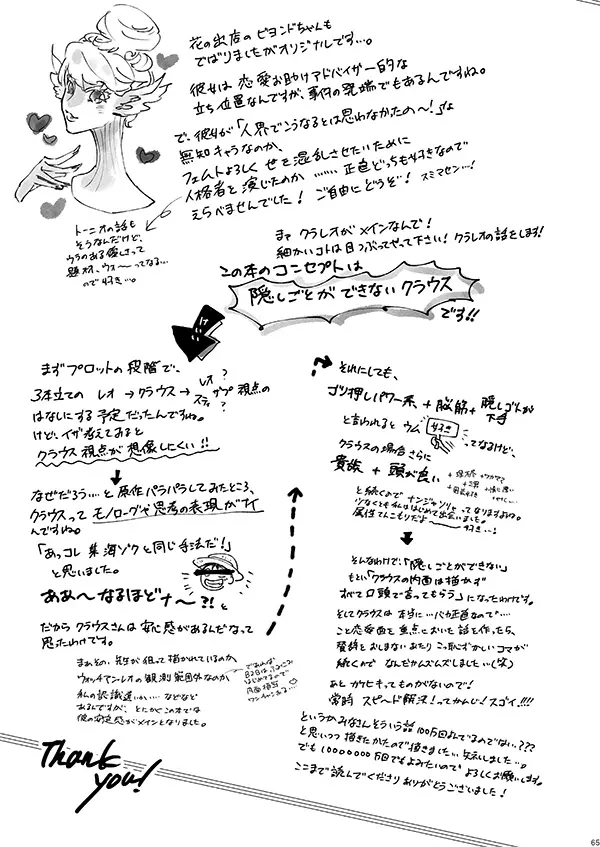 花の出店のビヨンドちゃんも
でばりましたがオリジナルです…。
彼女は恋愛お助けアドバイザー的な
立ち位置なんですが、事件の発端でもあるんですね。
で、彼女が「人界でこうなるとは思わなかたの〜!」な
無知キャラなのか、
フェムトよろしく世を混乱させたいために
人格者を演じたのか……正直どっちも好きなので
えらべませんでした! ご自由にどうぞ! スミマセン…!
トーニオの話も
そうなんだけど、
ウラのある優しさって
題材、ウォ〜ってなる…
ので好き…。
まァ クラレオがメインなんで!
細かいコトは目つぶってやって下さい! クラレオの話をします!
この本のコンセプトは
隠しごとができないクラウス
です!!
まずプロットの段階で、
3本立ての レオ→クラウス→レオ? ザプ? スティ? 視点の
はなしにする予定だったんですね。
けど、イザ考えてみると
クラウス視点が想像しにくい!!
なぜだろう…と原作パラパラしてみたところ、
クラウスって モノローグや思考の表現がナイ
んですね。
「あっコレ 某海ゾクと同じ手法だ!」
と思いました。
ああ〜なるほどナ〜?! と
だからクラウスさんは安心感があるんだなって
思たわけです。
まぁその、先生が狙って描かれているのか、
ウォッチマン・レオの観測範囲外なのか
私の認識違いか… などなど
あるんですが、とにかくこの本では
彼の安定感がメインとなりました。
Thank you!
それにしても、
ゴリ押しパワー系 + 脳筋 + 隠しゴトが下手
と言われると ウム 好き ってなるけど、
クラウスの場合さらに
貴族 + 頭が良い
と続くので ナンジャソリャってなりますよね。
少なくとも私ははじめて出会いました。
属性てんこもりだよ 好き…!
そんなわけで、「隠しごとができない」
もとい「クラウスの内面は描かず
すべて口頭で言ってもらう」になったわけです。
そしてクラウスは本当に…バカ正直なので…
こと恋愛面を重点においた話を作ったら、
賛辞をおしまないあたり こっ恥ずかしいコマが
続くので なんだかムズムズしました…(笑)
あと カケヒキってものがないので!
常時 スピード解決! ってかんじ! スゴイ!!!!
というかみなさんそういう話100万回よんでるのでない…???
と思いつつ 描きたかたので描きました…失礼しました…。
でも10000000万回でもよみたいので よろしくお願いします。
ここまで読んでくださり ありがとうございました!
65